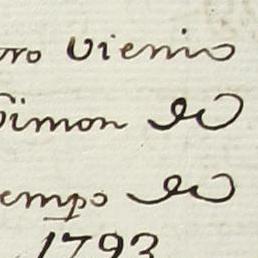 ro vienio
Simon de
empo de
1793